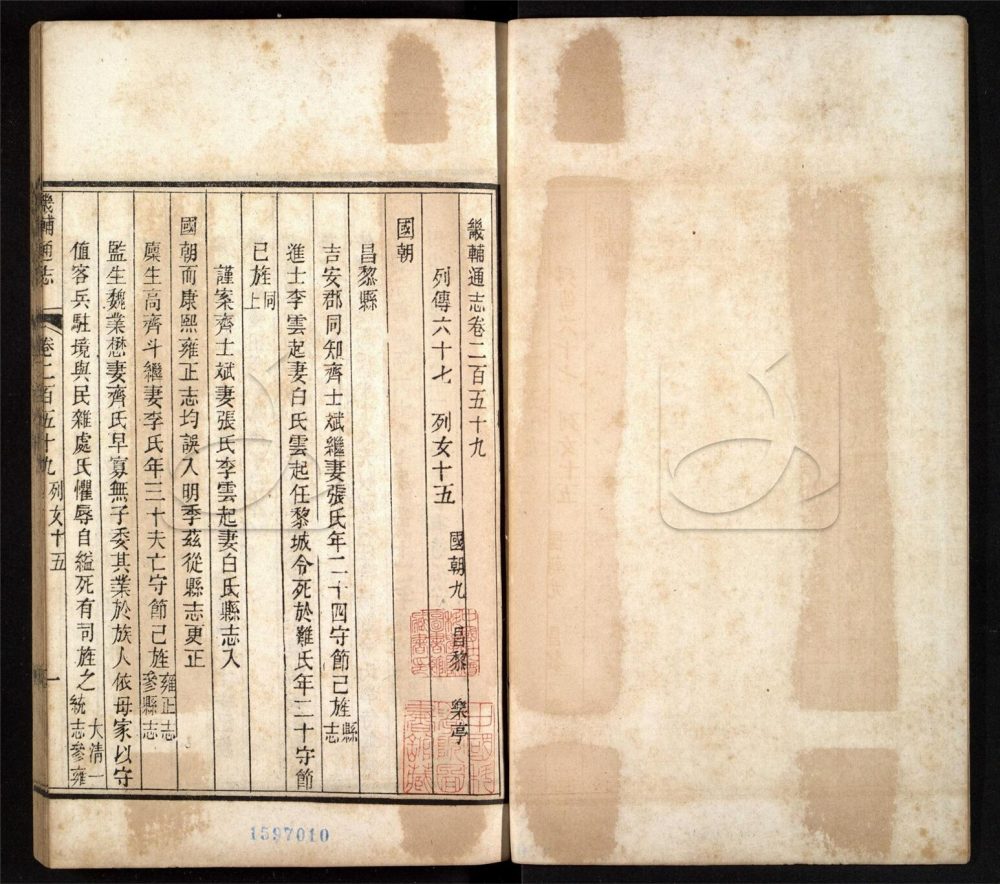 畿輔通志卷二百五十九
列傳六十七 列女十五 國朝九 昌黎 樂亭
國朝
昌黎縣
吉安郡同知齊士斌繼妻張氏年二十四守節已旌縣志
進士李雲起妻白氏雲起任黎城令死於難氏年二十守節
已旌同上
謹案齊士斌妻張氏李雲起妻白氏縣志入
國朝而康熙雍正志均誤入明季茲從縣志更正
廩生高齊斗繼妻李氏年三十夫亡守節已旌雍正志參縣志
監生魏業懋妻齊氏早寡無子委其業於族人依母家以守
值客兵駐境與民雜處氏懼辱自縊死有司旌之大清一統志參雍
畿輔通志 卷二百五十九 列女十五 一
1597010